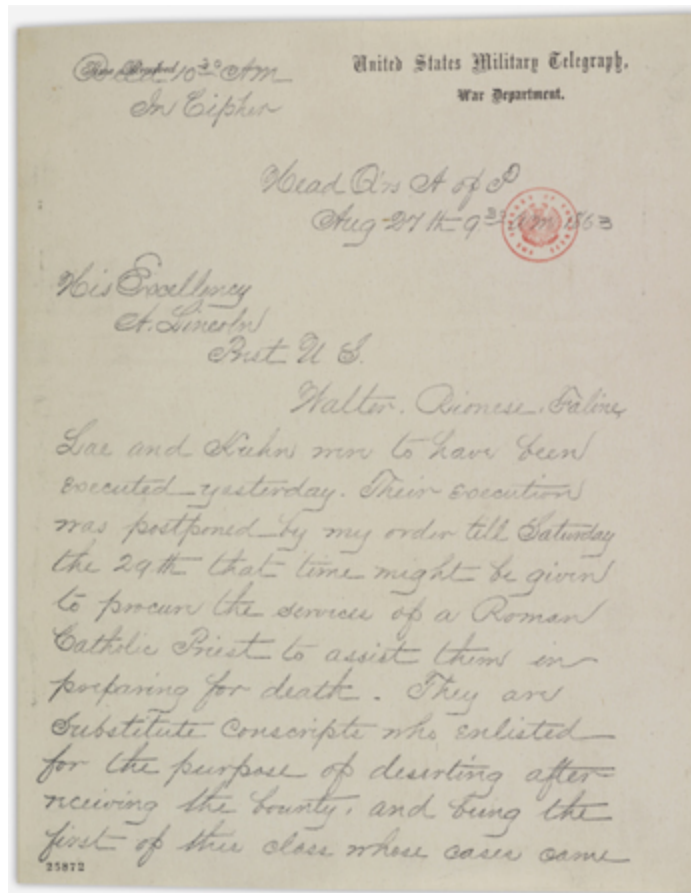 Recd 10 30 AM
In Cipher
United States Military Telegraph,
War Department.
Head Qrs A of P
Aug 27th 9 30 am 1863
His Excellency
A. Lincoln
Prest U S.
Walter. Rionese. Faline,
Lae and Kuhn were to have been
executed yesterday. Their execution
was postponed by my order till Saturday
the 29th that time might be given
to procure the services of a Roman
Catholic Priest to assist them in
preparing for death. They are
Substitute conscripts who enlisted
for the purpose of deserting after
receiving the bounty, and being the
first of this class whose cases came
25872